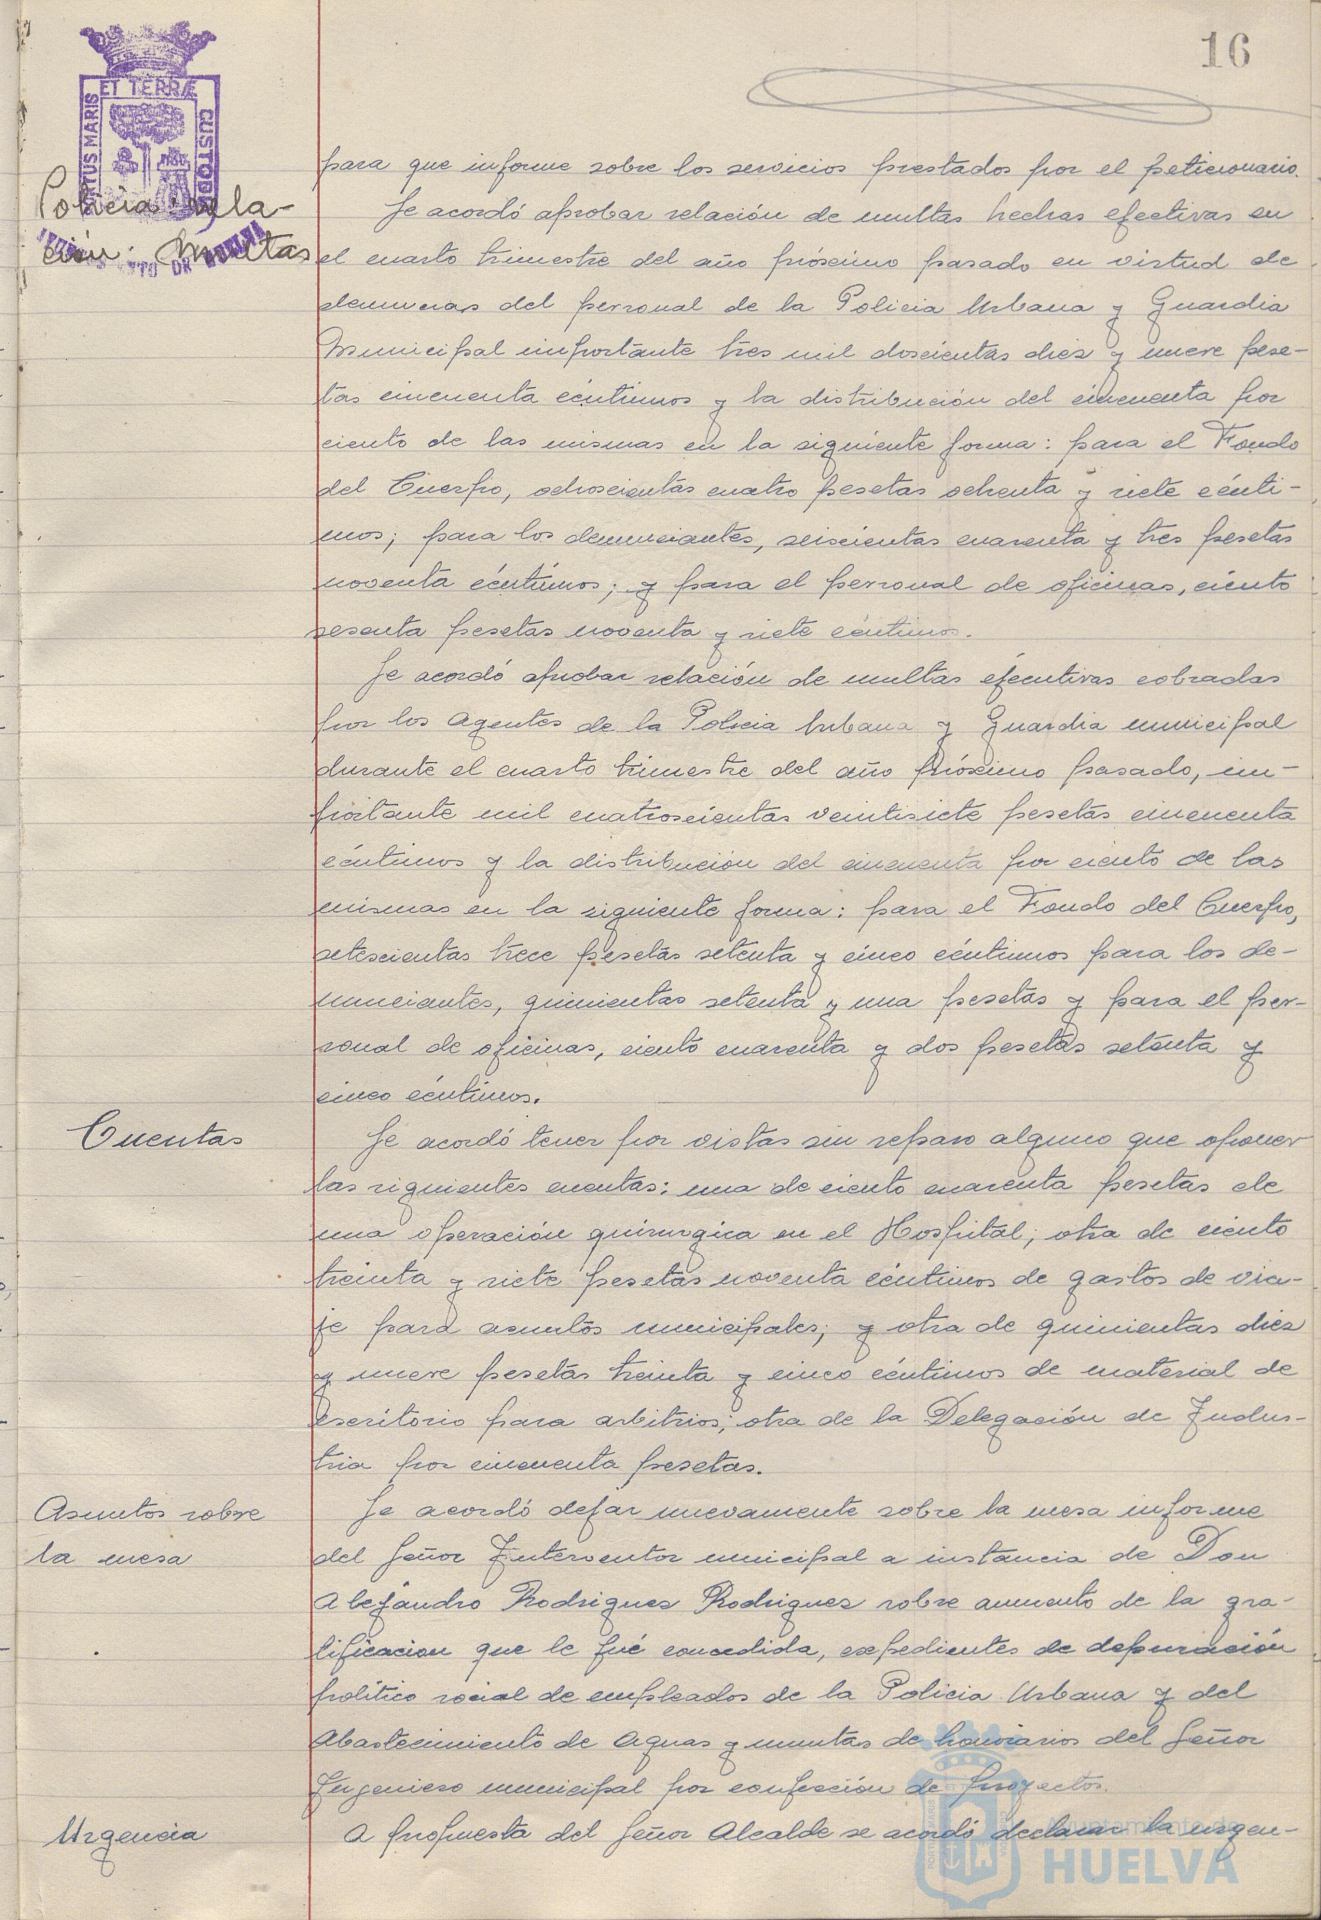 16
PORTUS MARIS
ET TERRÆ
CUSTODIA
AYUNTAMIENTO DE HUELVA
Policia: rela-
ción. Multas
para que informe sobre los servicios prestados por el peticionario.
Se acordó aprobar relación de multas hechas efectivas en
el cuarto trimestre del año próximo pasado en virtud de
denuncias del personal de la Policia Urbana y Guardia
Municipal importante tres mil doscientas diez y nueve pese-
tas cincuenta céntimos y la distribución del cincuenta por
ciento de las mismas en la siguiente forma: para el Fondo
del Cuerpo, ochoscientas cuatro pesetas ochenta y siete cénti-
mos; para los denunciantes, seiscientas cuarenta y tres pesetas
noventa céntimos; y para el personal de oficinas, ciento
sesenta pesetas noventa y siete céntimos.
Se acordó aprobar relación de multas ejecutivas cobradas
por los Agentes de la Policia Urbana y Guardia municipal
durante el cuarto trimestre del año próximo pasado, im-
portante mil cuatroscientas veintisiete pesetas cincuenta
céntimos y la distribución del cincuenta por ciento de las
mismas en la siguiente forma: para el Fondo del Cuerpo,
setescientas trece pesetas setenta y cinco céntimos para los de-
nunciantes, quinientas setenta y una pesetas y para el per-
sonal de oficinas, ciento cuarenta y dos pesetas setenta y
cinco céntimos.
Cuentas
Se acordó tener por vistas sin reparo alguno que oponer
las siguientes cuentas: una de ciento cuarenta pesetas de
una operación quirurgica en el Hospital; otra de ciento
treinta y siete pesetas noventa céntimos de gastos de via-
je para asuntos municipales; y otra de quinientas diez
y nueve pesetas treinta y cinco céntimos de material de
escritorio para arbitrios; otra de la Delegación de Indus-
tria por cincuenta pesetas.
Asuntos sobre
la mesa
Se acordó dejar nuevamente sobre la mesa informe
del Señor Interventor municipal a instancia de Don
Alejandro Rodrigues Rodrigues sobre aumento de la gra-
tificacion que le fué concedida, expedientes de depuración
político social de empleados de la Policia Urbana y del
Abastecimiento de Aguas y minutas de honorarios del Señor
Ingeniero municipal por confección de proyectos.
Urgencia
A propuesta del Señor Alcalde se acordó declarar la urgen-
Ayuntamiento de
HUELVA